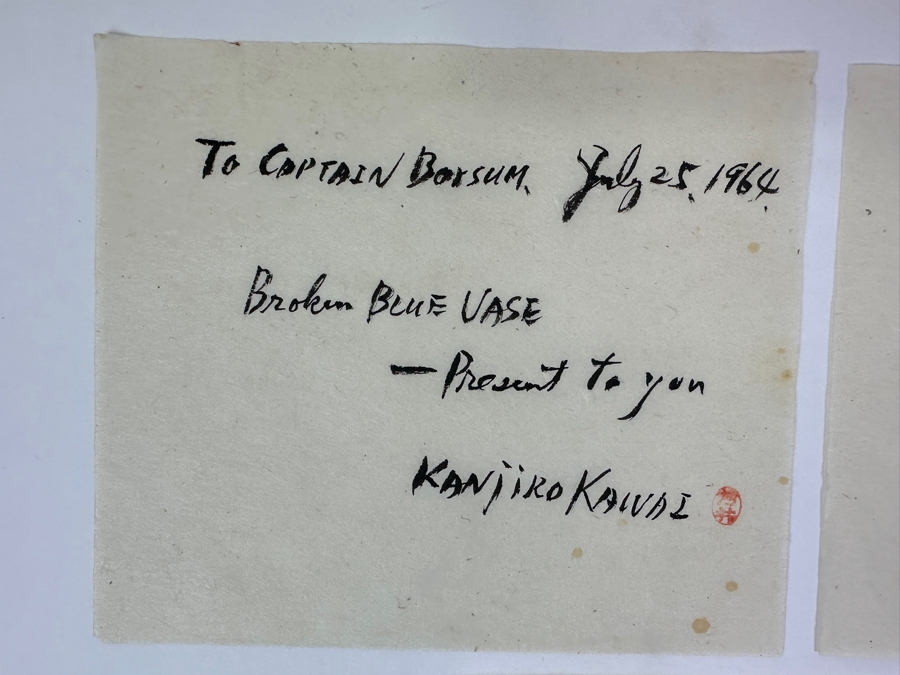 To CAPTAIN BORSUM. July 25, 1964.
Broken BLUE VASE
— Present to you
KANJIRO KAWAI